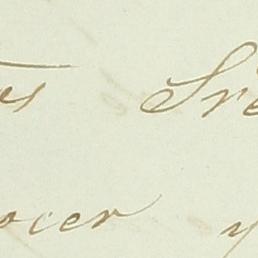 os Sre
ocer y